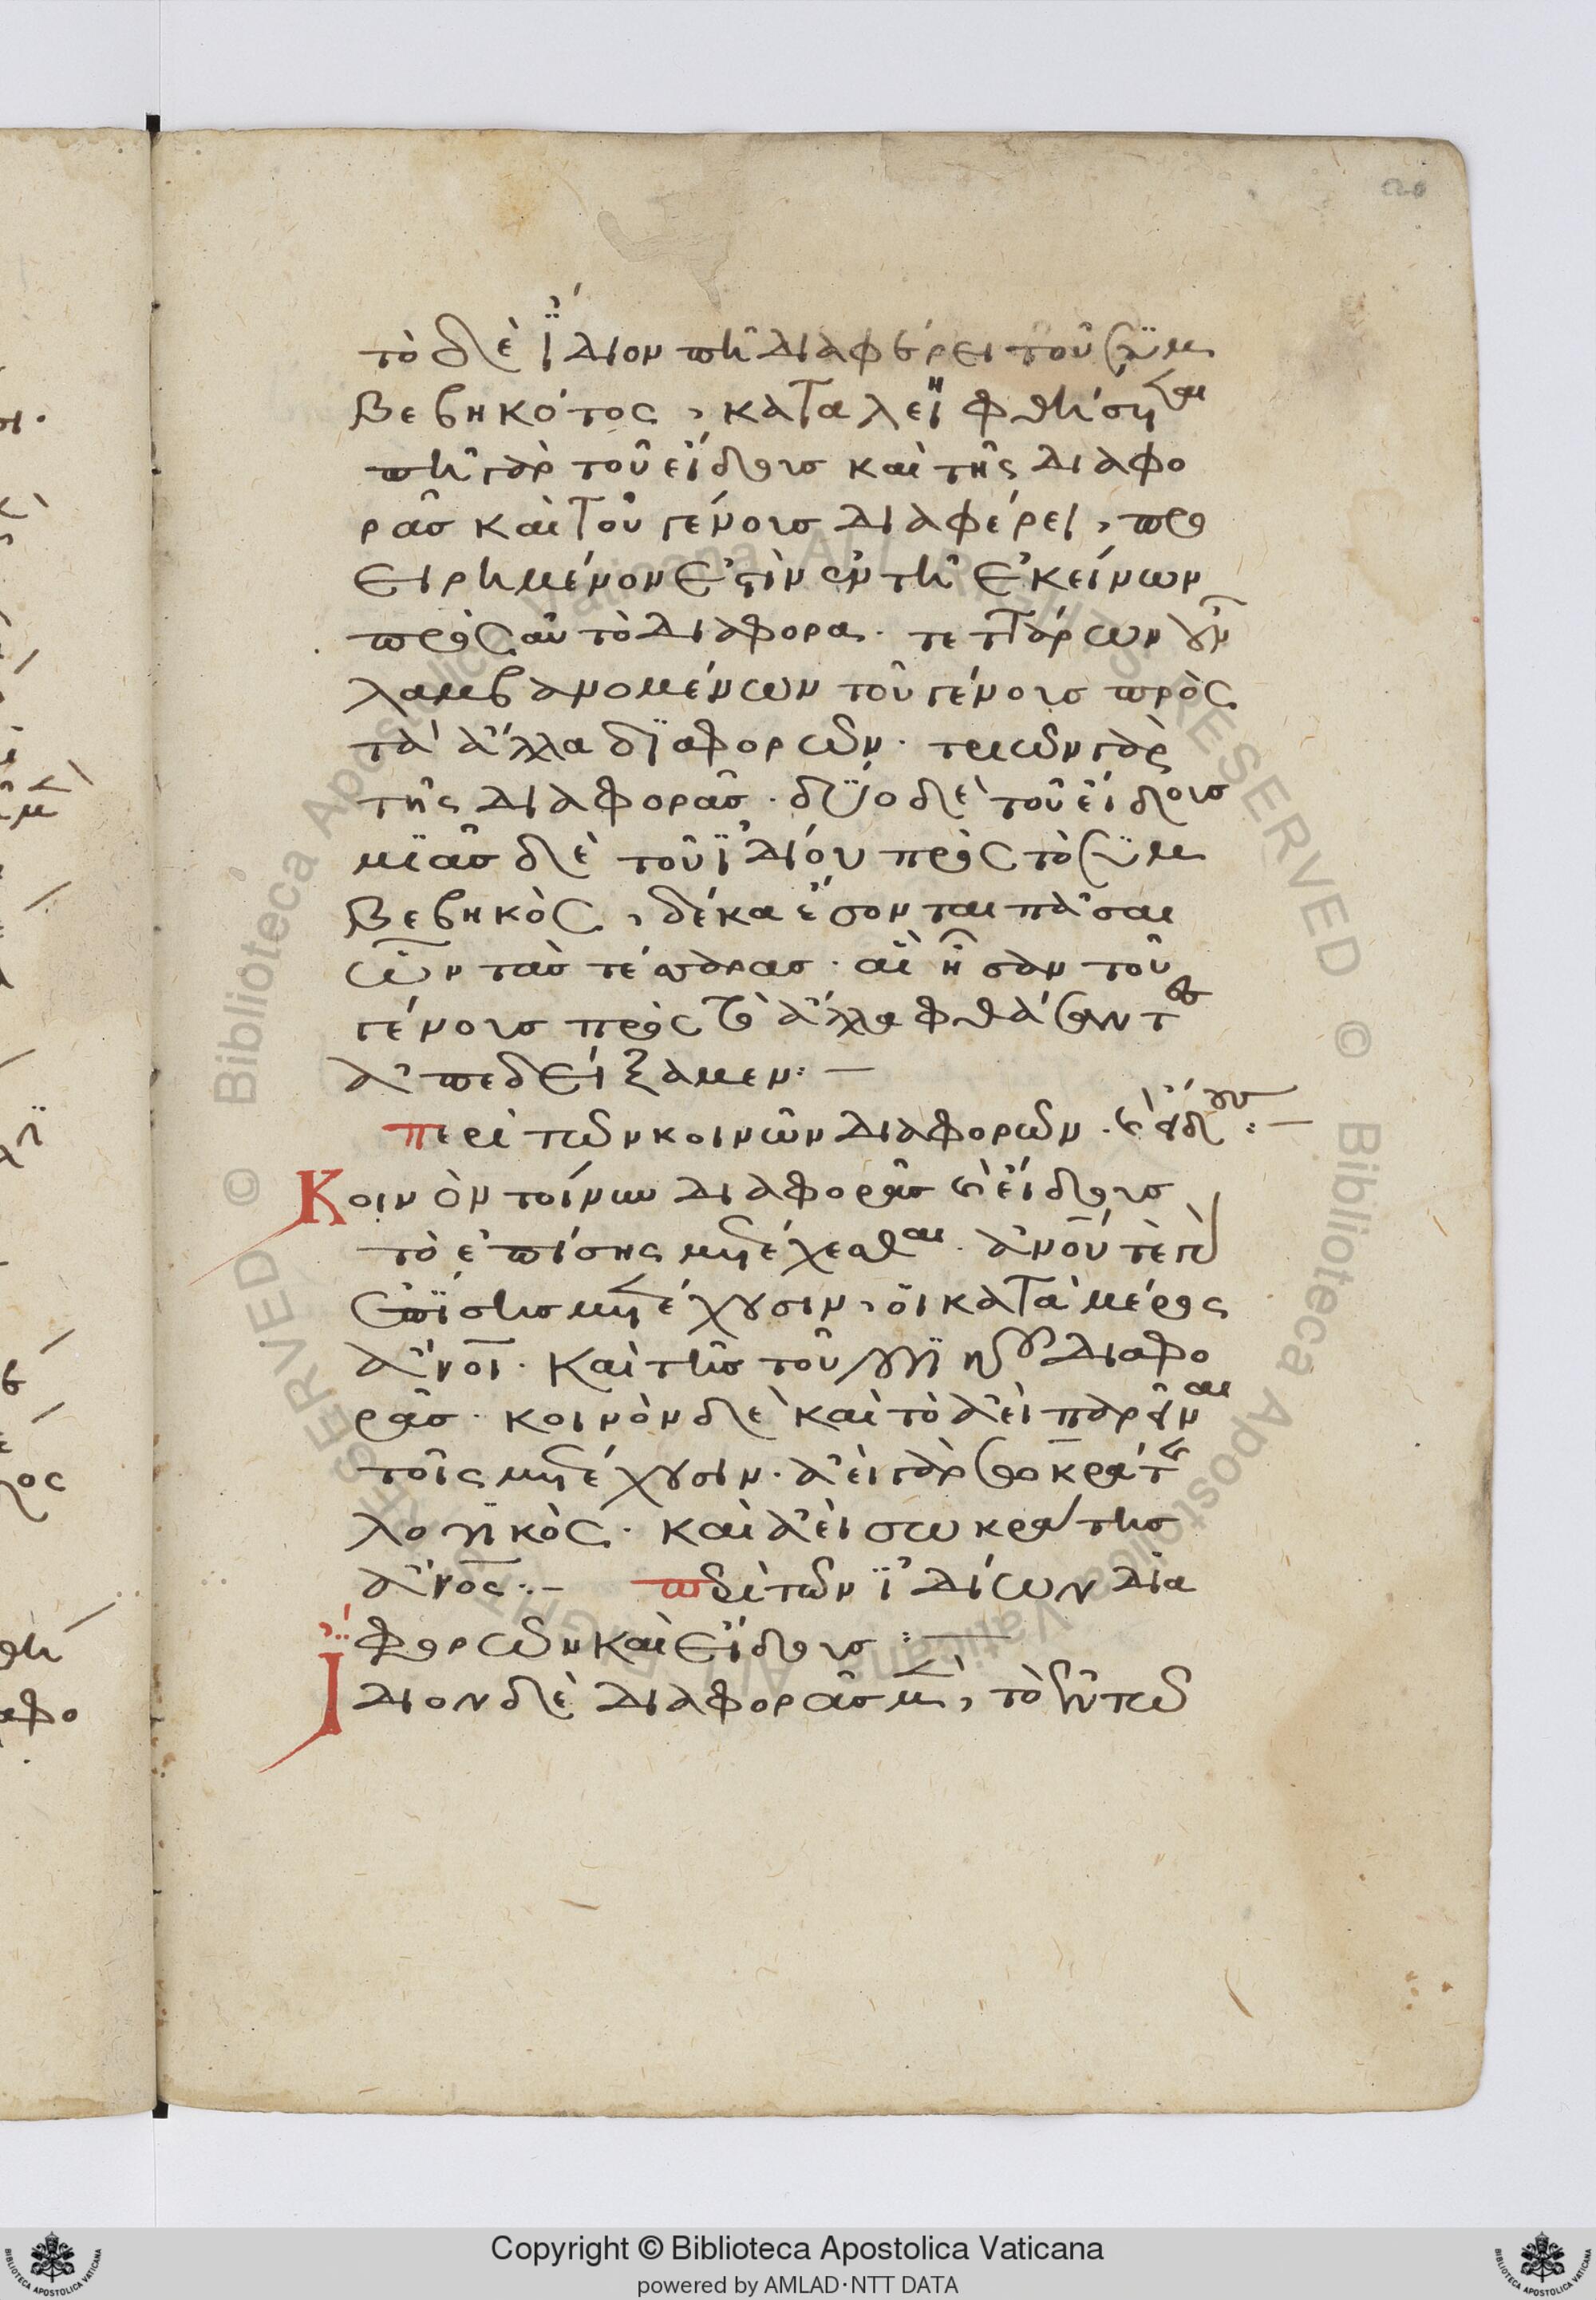 τὸ δὲ ἴδιον πῆ διαφέρει τοῦ συμ
βεβηκότος, καταλειφθήσεται
πῆ γὰρ τοῦ εἴδους καὶ τῆς διαφο
ρᾶς καὶ τοῦ γένους διαφέρει, προ
ειρημένον ἐστὶν ἐν τῆ ἐκείνων
πρὸς αὐτὸ διαφορα. τεττάρων οὖν
λαμβανομένων τοῦ γένους πρὸς
τὰ ἄλλα διαφορῶν. τριῶν γὰρ
τῆς διαφορᾶς. δύο δὲ τοῦ εἴδους
μιᾶς δὲ τοῦ ἰδίου πρὸς τὸ συμ
βεβηκὸς, δέκα ἔσονται πᾶσαι
ὧν τὰς τέσσαρας. αἳ ἦσαν τοῦ
γένους πρὸς τὰ ἄλλα φθάσαντες
ἀπεδείξαμεν:—
περὶ τῶν κοινῶν διαφορῶν. καὶ εἴδους:—
Κοινὸν τοίνυν διαφορᾶς καὶ εἴδους
τὸ ἐπίσης μετέχεσθαι. ἀνοῦ τε γὰρ
ἐπίσης μετέχουσιν, οἱ κατὰ μέρος
ἄνοι. καὶ τῆς τοῦ λογικοῦ διαφο
ρᾶς. κοινὸν δὲ καὶ τὸ ἀεὶ παρεῖναι
τοῖς μετέχουσιν. ἀεὶ γὰρ σωκράτης
λογικὸς. καὶ ἀεὶ σωκράτης
ἄνος:— περὶ τῶν ἰδίων δια
φορῶν καὶ εἴδους:—
Ἴδιον δὲ διαφορᾶς μὲν, τὸ ἐν τῶ
© Biblioteca Apostolica Vaticana ALL RIGHTS RESERVED
Copyright © Biblioteca Apostolica Vaticana
powered by AMLAD·NTT DATA